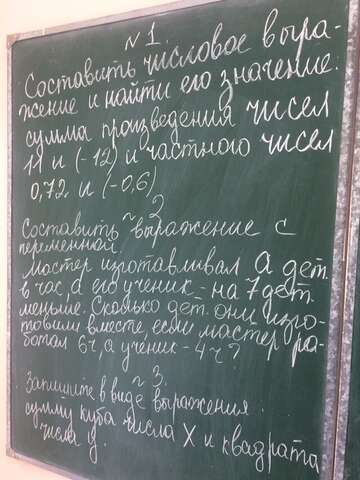 №1.
Составить числовое выра-
жение и найти его значение:
сумма произведения чисел
11 и (-12) и частного чисел
0,72 и (-0,6)
№2
Составить выражение с
переменной.
Мастер изготавливал а дет.
в час, а его ученик - на 7 дет.
меньше. Сколько дет. они изго-
товили вместе, если мастер ра-
ботал 6ч, а ученик - 4ч?
№3.
Запишите в виде выражения
сумму куба числа X и квадрата
числа y.